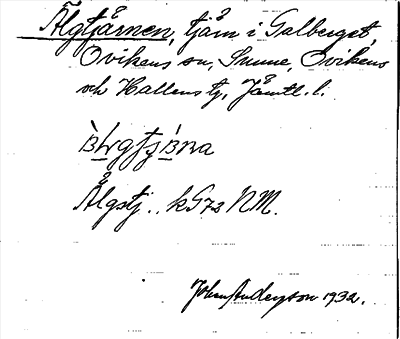 Älgtjärnen, tjärn i Galberget,
Ovikens sn, Sunne, Ovikens
och Hallens tg, Jämtl. l.
Älgstj.. kG7z NM.
Johan Anderson 1932.